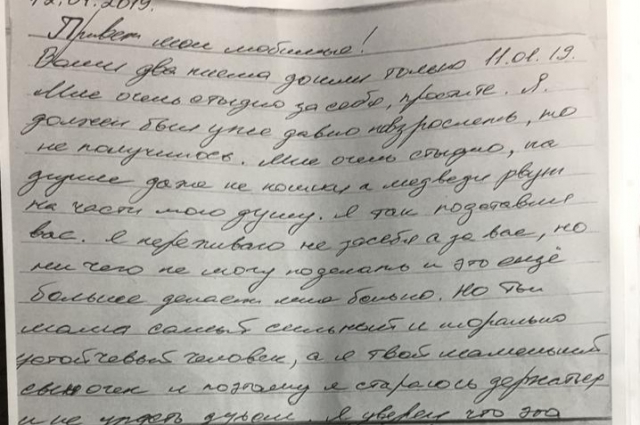 12.01.2019.
Привет мои любимые!
Ваши два писма дошли только 11.01.19.
Мне очень стыдно за себя, простите. Я
должен был уже давно повзрослеть, но
не получилось. Мне очень стыдно, на
душе даже не кошки а медведи рвут
на части мою душу. Я так подставил
вас. Я переживаю не засебя а за вас, но
ни чего не могу поделать и это ещё
больнее делает мне больно. Но ты
мама самый сильный и морально
устойчевый человек, а я твой маменький
сыночек и поэтому я стараюсь держаться
и не упасть духом. Я уверен что это